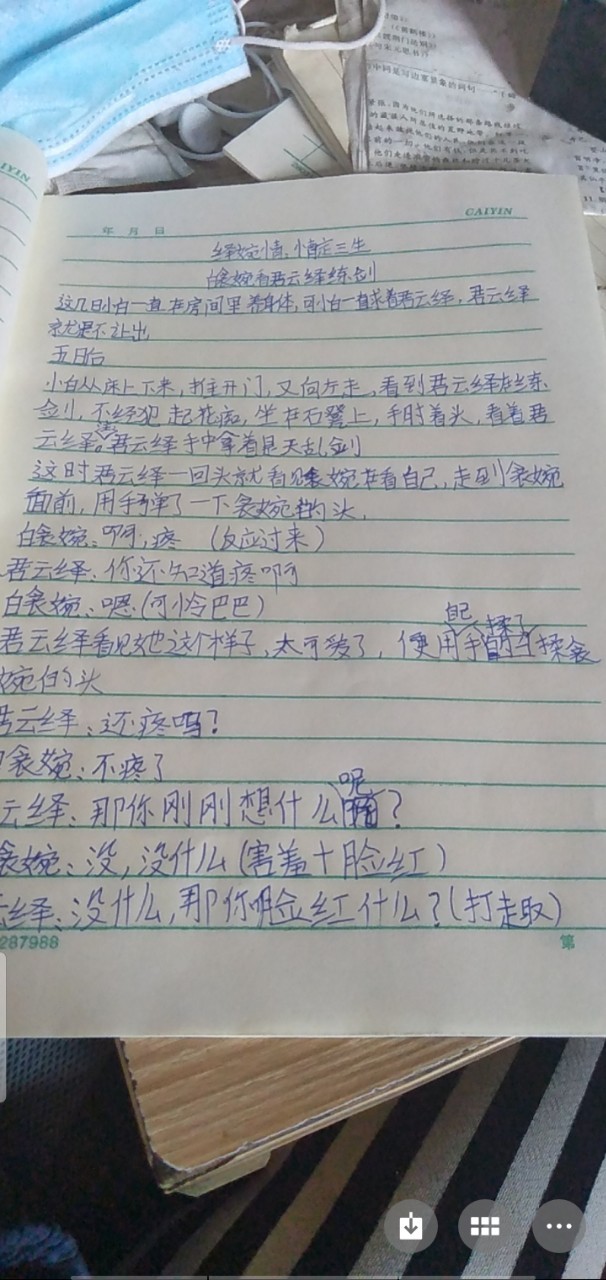 CAIYIN
年 月 日
绎婉情,情定三生
白衾婉看君云绎练剑
这几日小白一直在房间里养身体,可小白一直求着君云绎,君云绎
就是不让出
五日后
小白从床上下来,推开门,又向左走,看到君云绎在练
剑,不经犯起花痴,坐在石凳上,手肘着头,看着君
云绎。君云绎手中拿着是天乱剑
这时君云绎一回头就看见衾婉在看自己,走到衾婉
面前,用手弹了一下衾婉的头,
白衾婉:啊,疼 (反应过来)
君云绎:你还知道疼啊
白衾婉:嗯(可怜巴巴)
君云绎看见她这个样子,太可爱了,便用自己手揉了揉衾
婉的头
君云绎:还疼吗?
白衾婉:不疼了
云绎:那你刚刚想什么呢?
衾婉:没,没什么(害羞+脸红)
云绎:没什么,那你脸红什么?(打趣)
287988
第